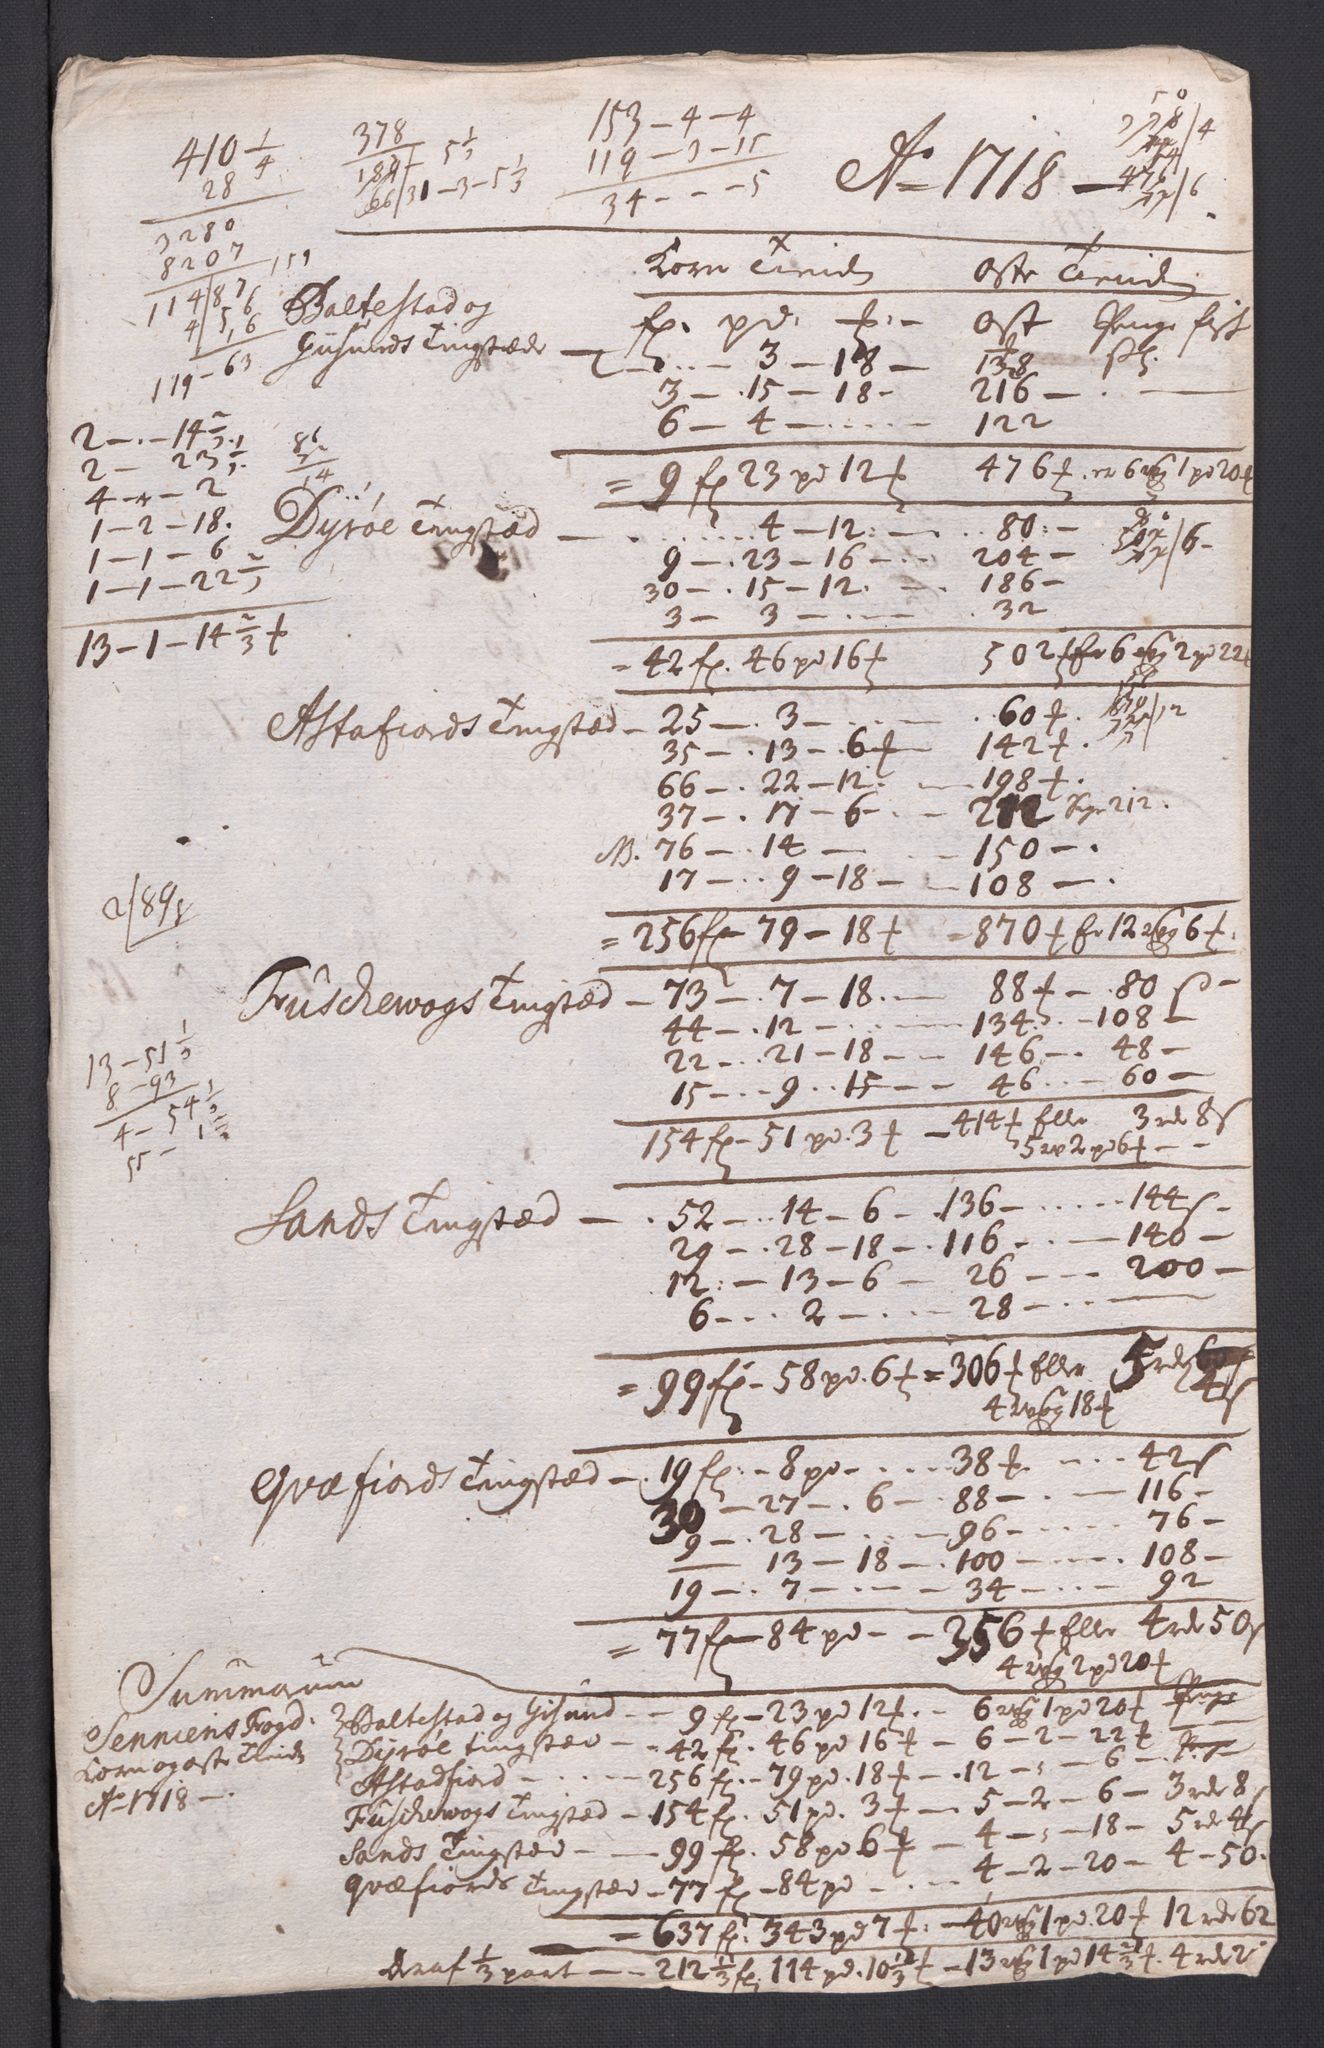 410 1/4
28
3280
8207
114 / 87 6
4 / 5,6
119 - 63
378
189 - 5 1/3
66/31 - 3 - 5 1/3
153 - 4 - 4
119 - 3 - 15
34 - - - 5
Ao 1718 -
Korn Tiende oste Tiende
Baltestad og fz. pd. ost Penge
Gisunds Tingstæde - - 3 - 18 - 138
3 - 15 - 18 - 216 -
6 - 4 - 122
= 9 fz 23 pd 12 476 . er 6 wog 1 pd 20
2 - . - 14 2/3
2 - 23 1/3
4 - 4 - 2
1 - 2 - 18.
1 - 1 - 6
1 - 1 - 22 2/3
13 - 1 - 14 2/3
Dÿröe Tingstæd - 4 - 12 - 80 -
9 - 23 - 16 - 204 -
30 - 15 - 12. - 186 -
3 - 3 - 32
= 42 fz. 46 pd 16 502 er 6 wog 2 pd 22
Astafiords Tingstæd - 25 - 3 - 60
35 - 13 - 6 142
66 - 22 - 12 - 198
37 - 17 - 6 - 212 212.
NB. 76 - 14 - 150 -
17 - 9 - 18 - 108 -
= 256 fz 79 - 18 - 870 er 12 wog 6
2/89
Fuschewogs Tingstæd - 73 - 7 - 18. - 88 - 80 s -
44 - 12 - 134 - 108 -
22 - 21 - 18 - 146 - 48 -
15 - 9 - 15 - 46 - 60 -
154 fz - 51 pd. 3 - 414 Eller 3 rd 8 s
5 w 2 pd 6 - -
13 - 51 1/3
8 - 93
4 - 54 1/3
55 -
Sands Tingstæd - 52 - 14 - 6 - 136 - 144 s -
29 - 28 - 18 - 116 - 140 -
12 - 13 - 6 - 26 - 200 -
6 - 2 - 28 -
= 99 fz - 58 pd. 6 = 306 Eller 5 rd 4 s
4 wog 18
Qvæfiords Tingstæd - 19 fz - 8 pd - 38 - 42 s
30 - 27 - 6 - 88 - 116 -
9 - 28 - 96 - 76 -
13 - 18 - 100 - 108 -
19 - 7 - 34 - 92
= 77 fz - 84 pd - - 356 Eller 4 rd 50 s
4 wog 2 pd 20
Summarum
Senniens Fogd. Baltestad og Gisund - - 9 fz - 23 pd 12 - 6 wog 1 pd 20
Korn og oste Tiende Dyröe tingstæd - 42 fz. 46 pd 16 - 6 - 2 - 22
Ao 1718 - . Astadfiord - 256 fz. - 79 pd. 18 - 12 - - 6 -
Fuschewogs Tingstæd - 154 fz. 51 pd. 3 - 5 - 2 - 6 - 3 rd 8 s
Sands Tingstæd - 99 fz. 58 pd 6 - 4 - - 18 - 5 rd 4 s
Qvæfiords Tingstæd - 77 fz - 84 pd - 4 - 2 - 20 - 4 - 50.
= 637 fz. 343 pd 7 - 40 wog 1 pd 20 12 rd 62
Deraf 1/3 part - 212 1/3 fz. 114 pd. 10 1/3 - 13 wog 1 pd 14 2/3 4 rd